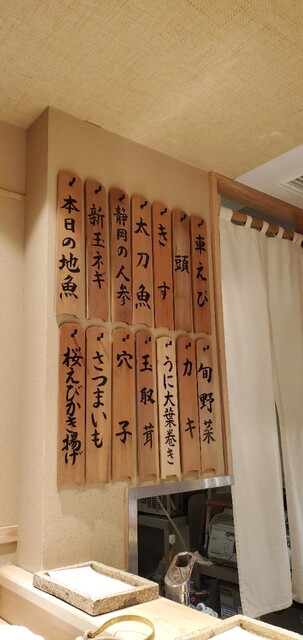 車えび
頭
きす
太刀魚
静岡の人参
新玉ネギ
本日の地魚
旬野菜
カキ
うに大葉巻き
玉取茸
穴子
さつまいも
桜えびかき揚げ